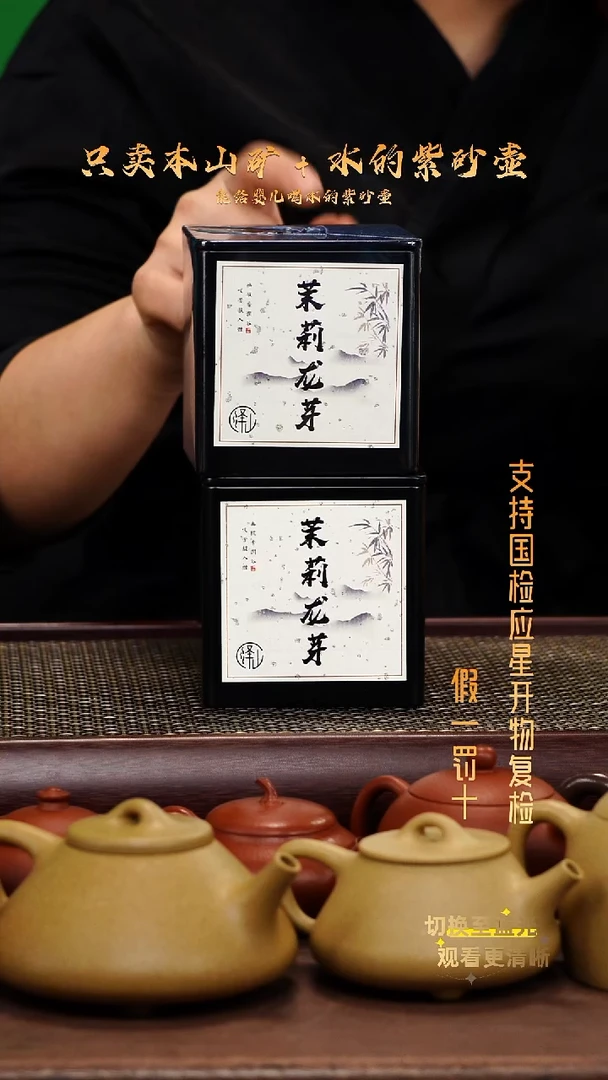 只卖本山矿+水的紫砂壶
能给婴儿喝水的紫砂壶
茉莉龙芽
茉莉龙芽
支持国检应星开物复检
假一罚十
观看更清晰